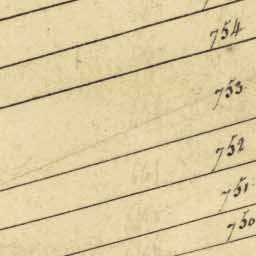 754
753
752
751
750